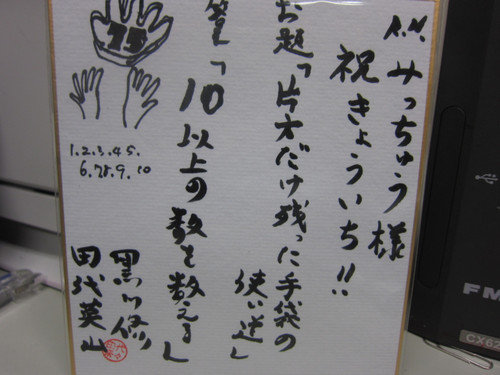 仏みっちゅう様
祝きょういち!!
お題「片方だけ残った手袋の
使い道」
答え「10以上の数を数える」
75
1.2.3.4.5.
6.7.8.9.10
黒川修
田代英山
FM
CX62